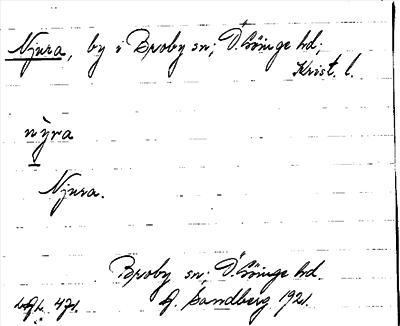 Njura, by i Broby sn; Ö. Göinge hd;
Krist. l.
nỳra
Njura.
Broby sn; Ö. Göinge hd.
G. Sandberg 1921.